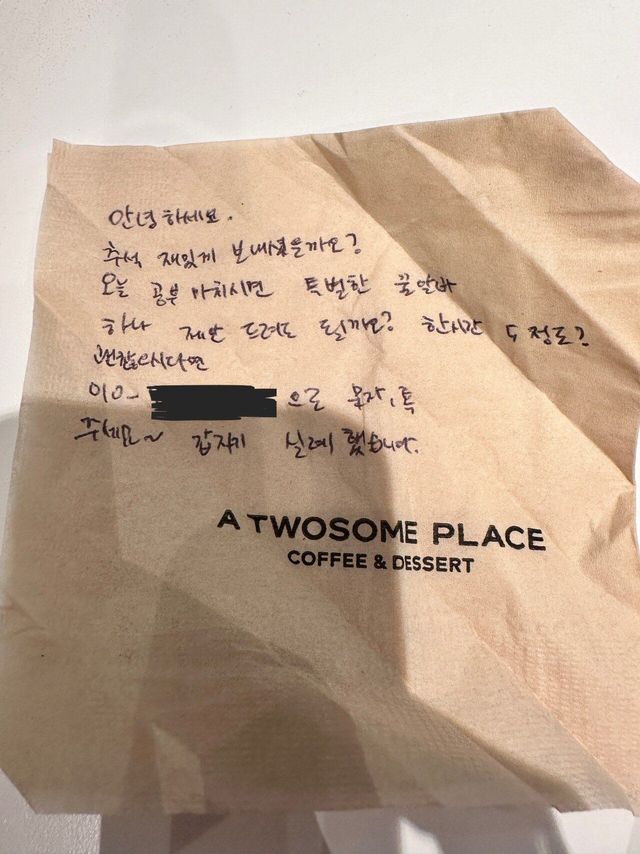 안녕하세요.
추석 재밌게 보내셨을까요?
오늘 공부 마치시면 특별한 꿀알바
하나 제안 드려도 될까요? 한시간 정도?
괜찮으시다면
010- 으로 문자, 톡
주세요~ 갑자기 실례했습니다.
A TWOSOME PLACE
COFFEE & DESSERT